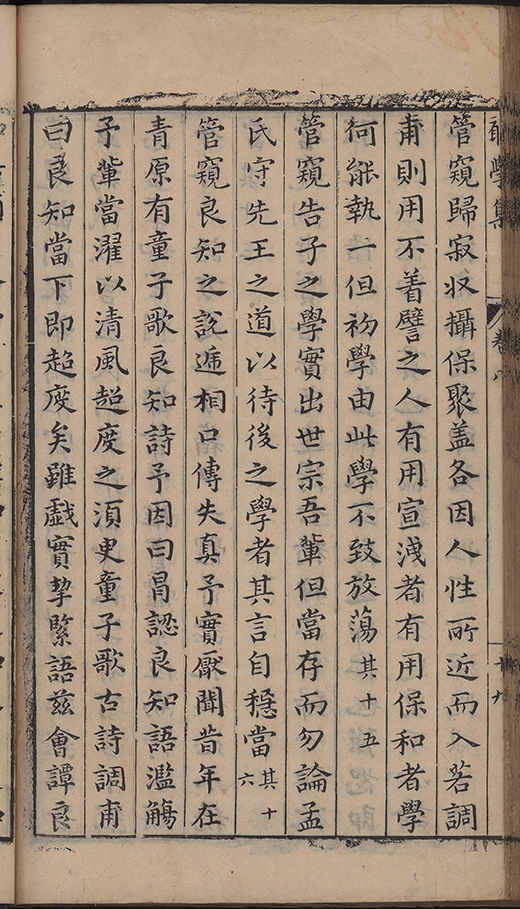 衡學集 卷八 十九
管窺歸寂收攝保聚盖各因人性所近而入若調
甫則用不着譬之人有用宣洩者有用保和者學
何能執一但初學由此學不致放蕩其十五
管窺告子之學實出世宗吾輩但當存而勿論孟
氏守先王之道以待後之學者其言自穩當其十六
管窺良知之說遞相口傳失真予實厭聞昔年在
青原有童子歌良知詩予因曰冐認良知語濫觴
予輩當濯以清風超度之須臾童子歌古詩調甫
曰良知當下即超度矣雖戱實摯緊語兹會譚良